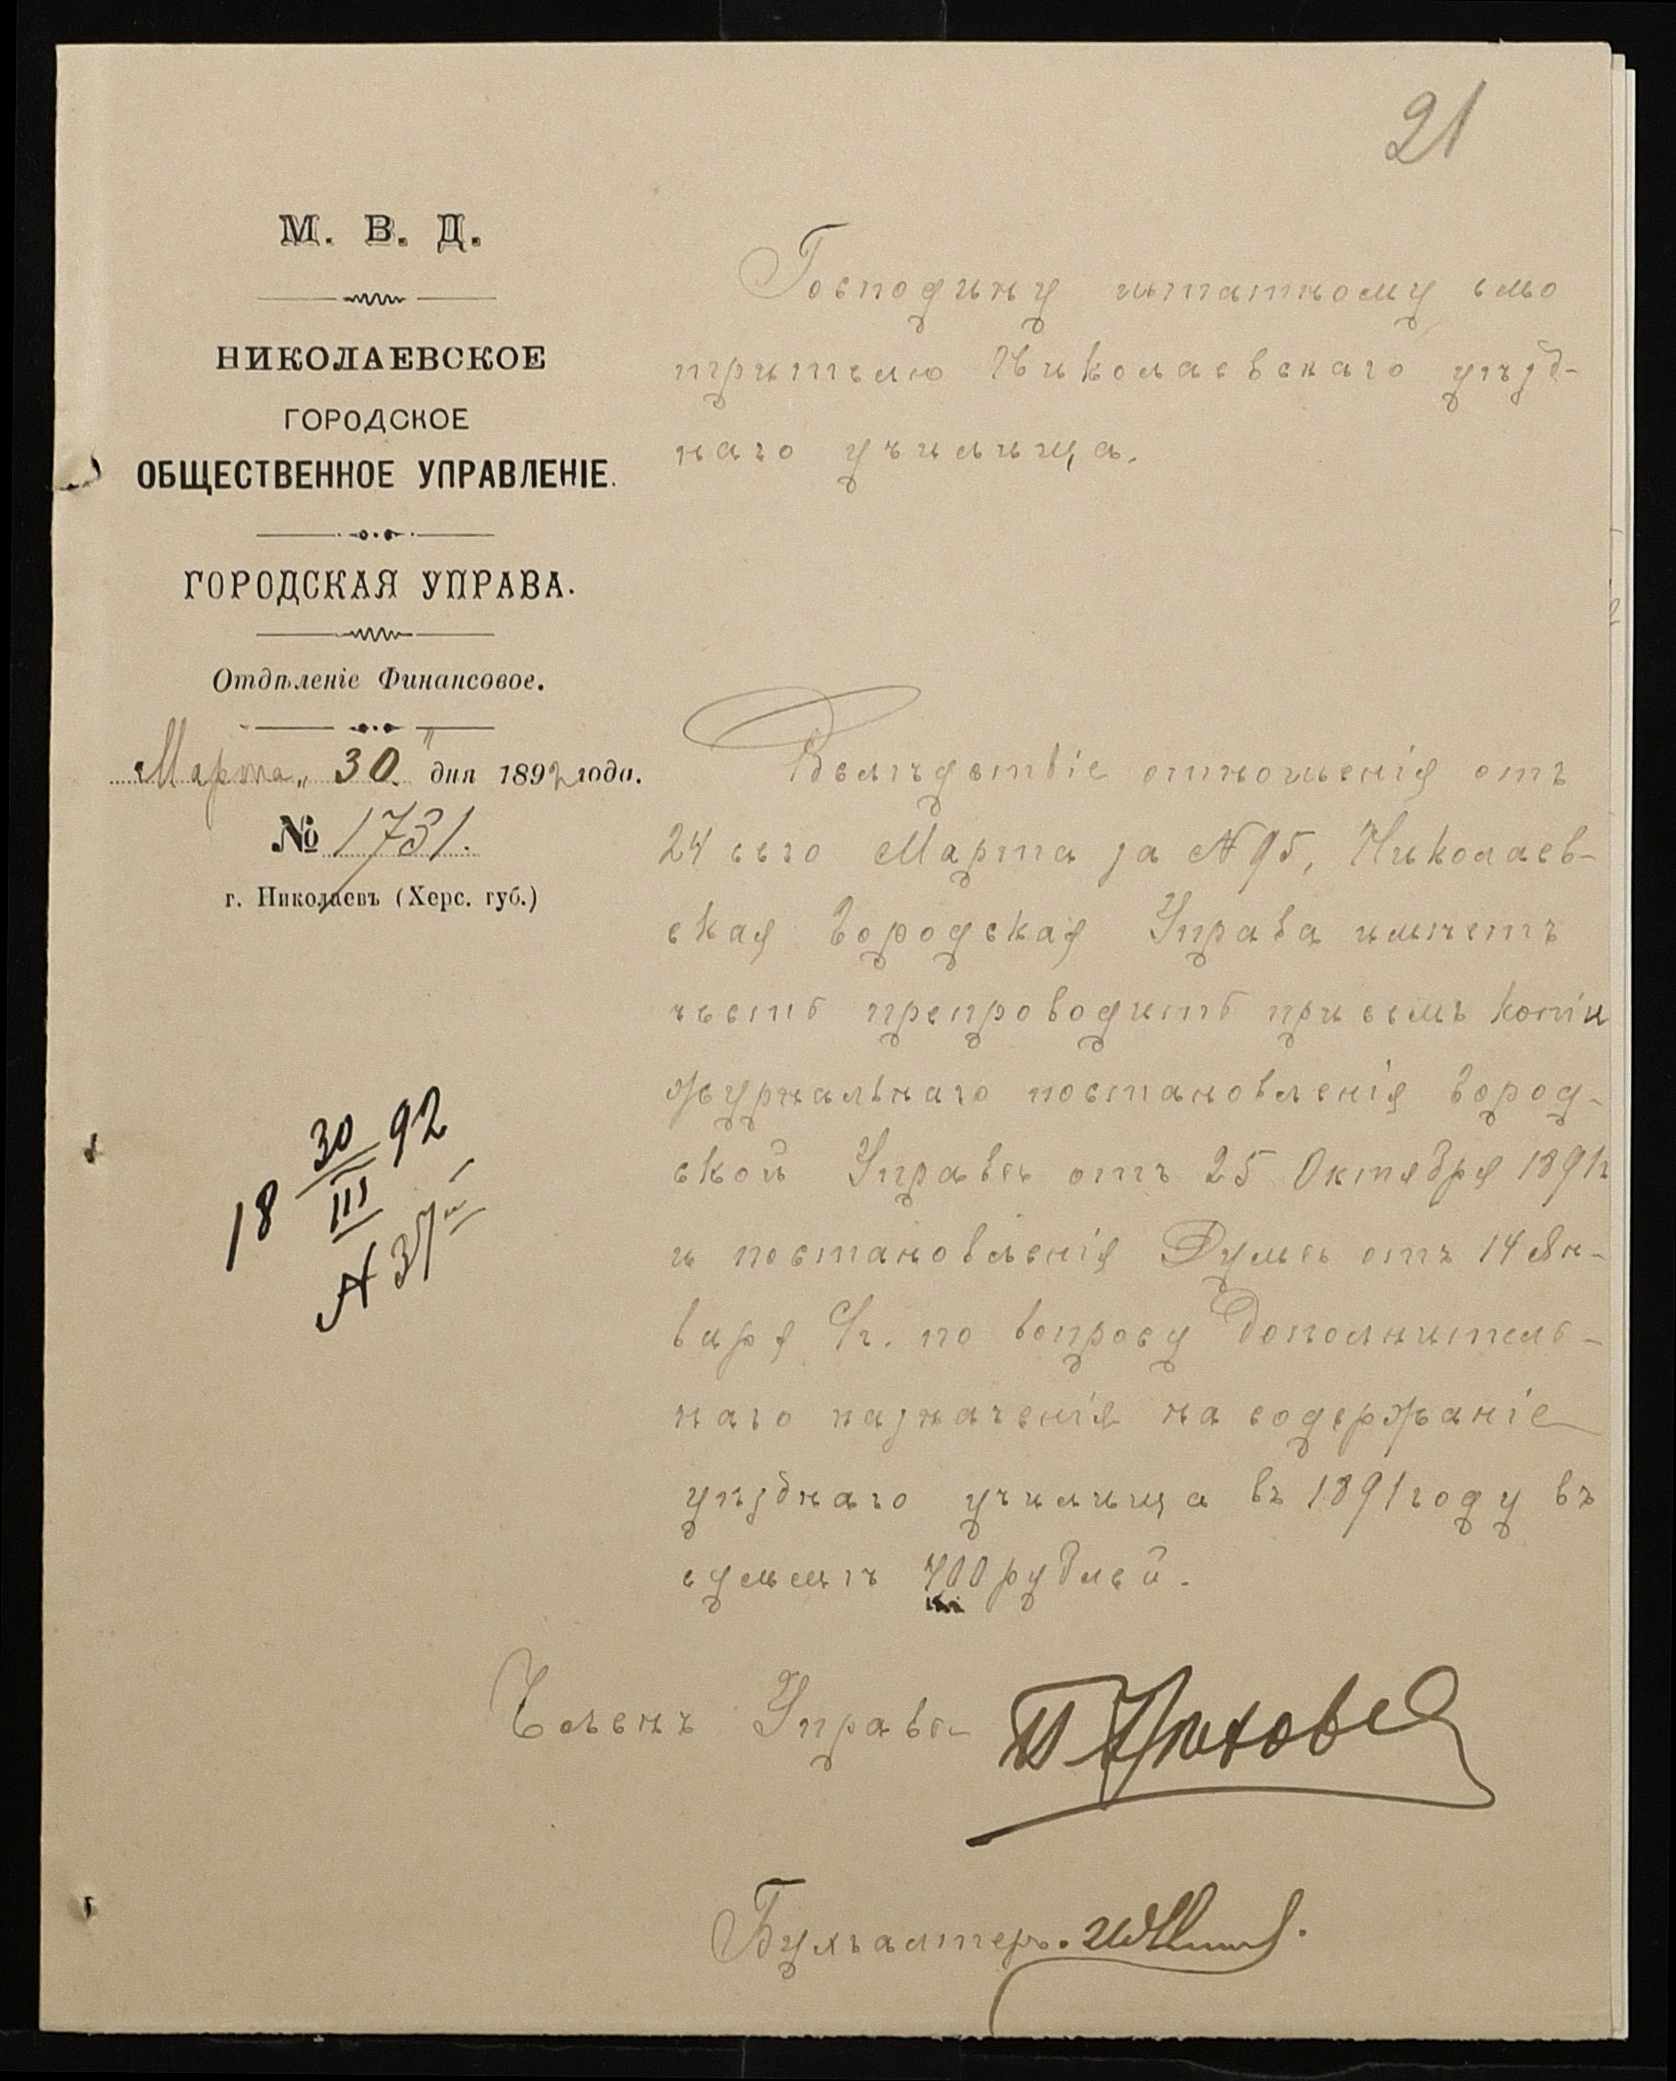 21
М. В. Д.
НИКОЛАЕВСКОЕ
ГОРОДСКОЕ
ОБЩЕСТВЕННОЕ УПРАВЛЕНІЕ.
ГОРОДСКАЯ УПРАВА.
Отдѣленіе Финансовое.
Марта „30" дня 1892 года.
№ 1731.
г. Николаевъ (Херс. губ.)
18 30/III 92
№ 37
Господину штатному смо
трителю Николаевскаго уѣзд-
наго училища.
Вслѣдствіе отношенія отъ
24 сего Марта за № 95, Николаев-
ская Городская Управа имѣетъ
честь препроводить при семъ копіи
журнальнаго постановленія Город-
ской Управы отъ 25 Октября 1891 г.
и постановленія Думы отъ 14 Ян-
варя с/г. по вопросу дополнитель-
наго назначенія на содержаніе
уѣзднаго училища въ 1891 году въ
суммѣ 700 рублей.
Членъ Управы
Бухгалтеръ